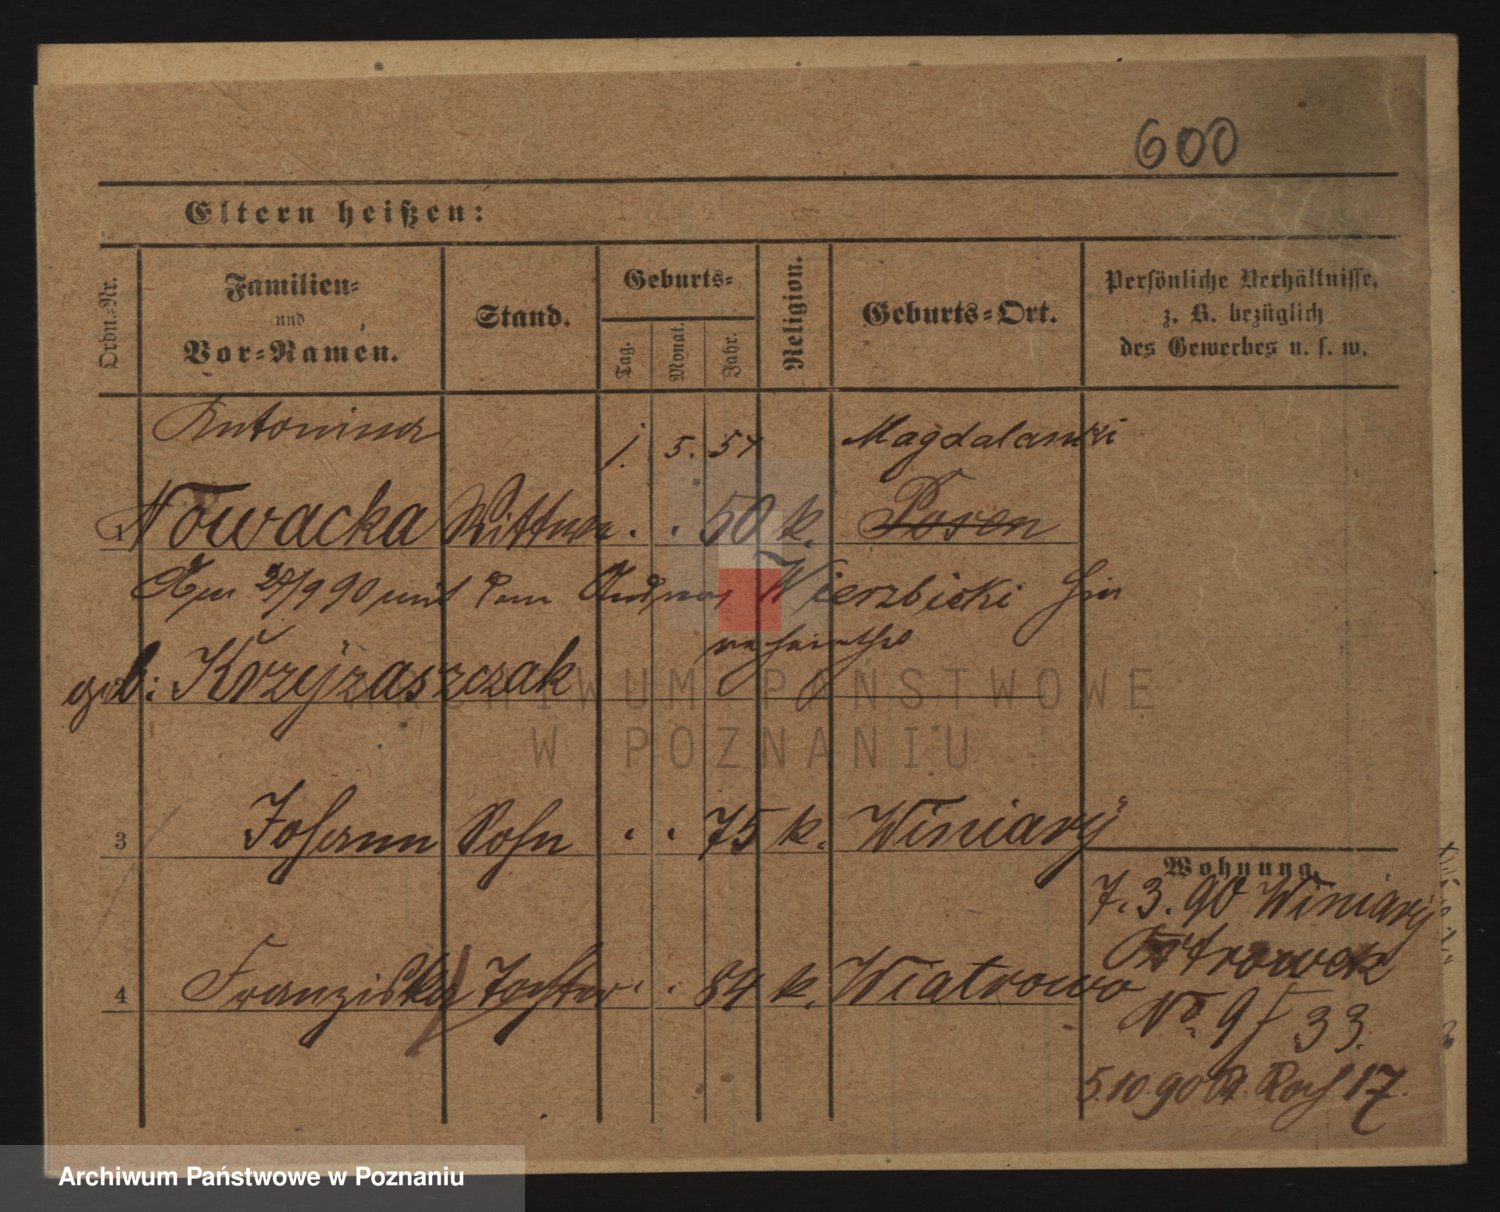 600
Eltern heißen:
Ordn.-Nr.
Familien-
und
Vor-Namen.
Stand.
Geburts-
Tag.
Monat.
Jahr.
Religion.
Geburts-Ort.
Persönliche Verhältnisse,
z. B. bezüglich
des Gewerbes u. s. w.
Antonina 1. 5. 57 Magdalanski
1 Nowacka Wittwe . . 50 k. Posen
Am 29/9 90 mit dem Andreas Wierzbicki hier
verheirathet
geb: Krzyzaszczak
3 Johann Sohn . . 75 k. Winiary
Wohnung.
7. 3. 90 Winiary
Ostrowek
4 Franziska Tochter . . 84 k. Wiatrowo
No 9 f 33.
5.10.90 St. Roch 17.
ARCHIWUM PAŃSTWOWE
W POZNANIU
Archiwum Państwowe w Poznaniu